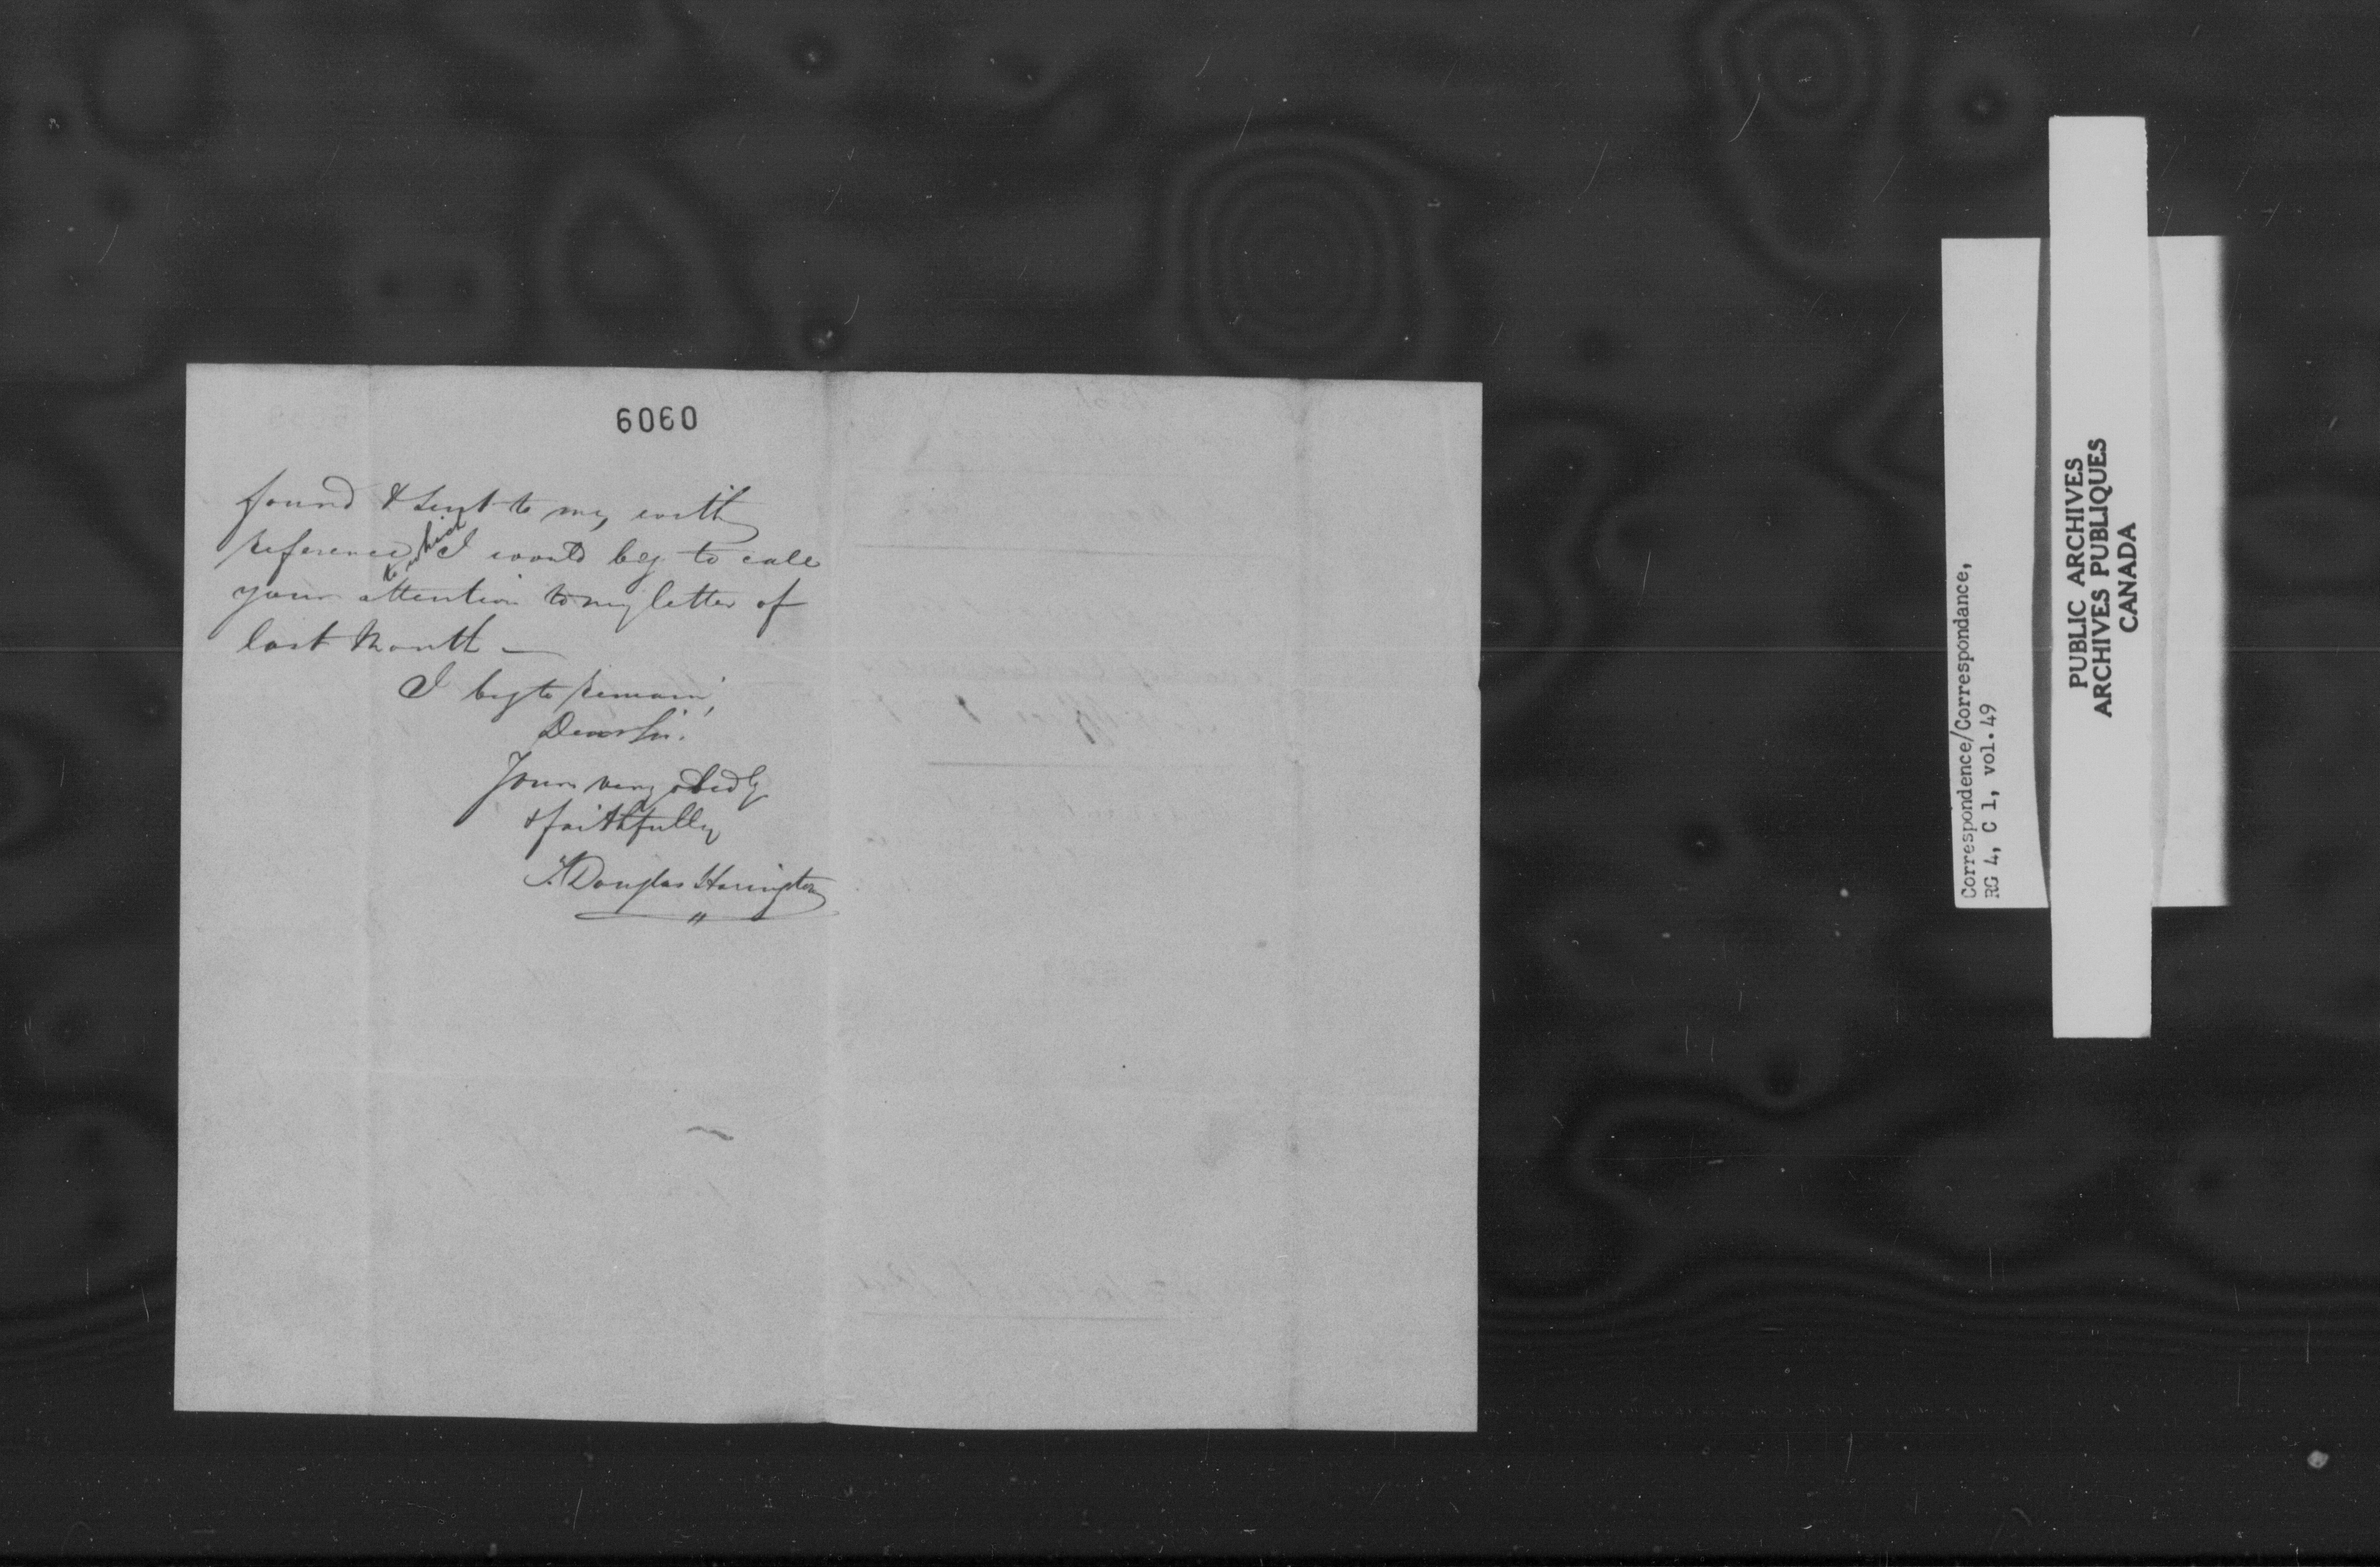 6060
found & sent to me, with
reference to which I would beg to call
your attention to my letter of
last Month —
I beg to remain,
Dear Sir.
Yours very obedly
& faithfully
T. Douglas Harington
Correspondence/Correspondance,
RG 4, C 1, vol. 49
PUBLIC ARCHIVES
ARCHIVES PUBLIQUES
CANADA